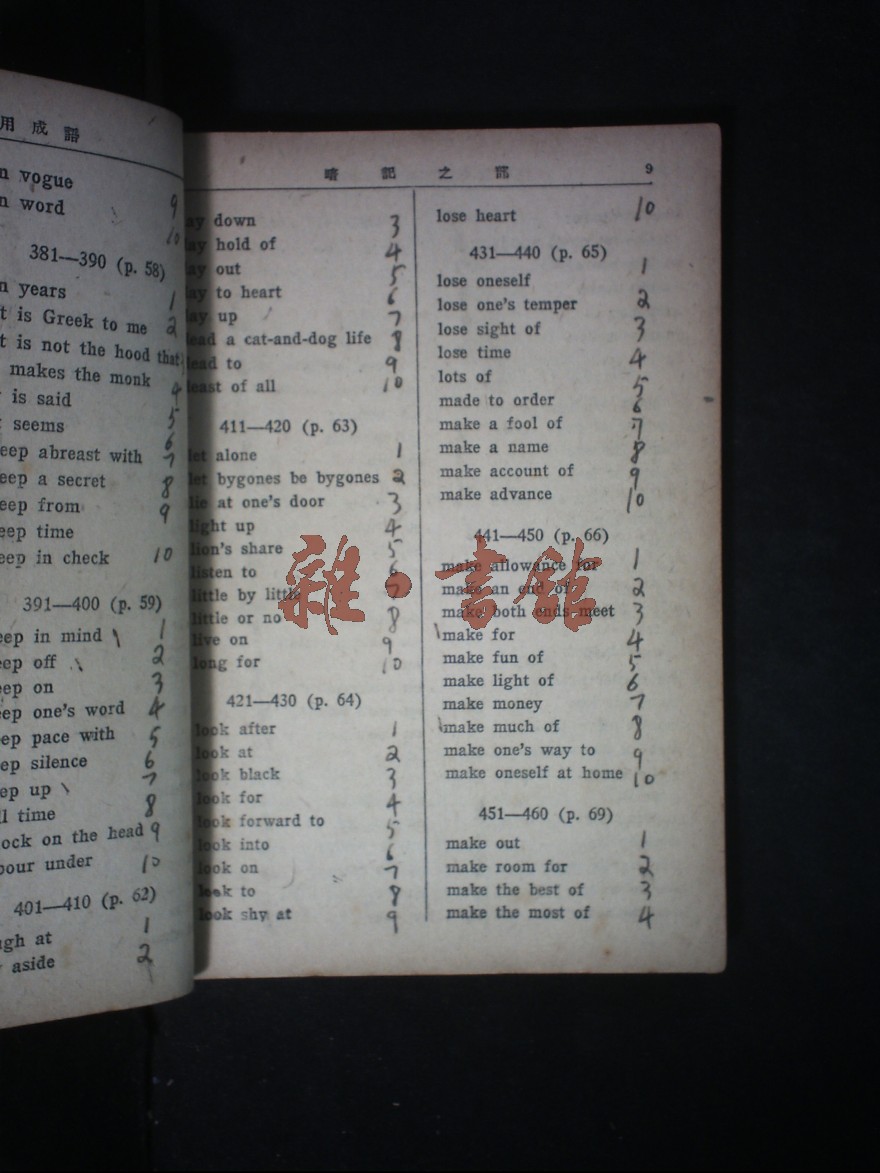 用成語
vogue 9
word 10
381—390 (p. 58)
years 1
is Greek to me 2
is not the hood that
makes the monk 4
is said 5
seems 6
eep abreast with 7
eep a secret 8
eep from 9
eep time
eep in check 10
391—400 (p. 59)
eep in mind \ 1
ep off \ 2
ep on 3
ep one's word 4
ep pace with 5
ep silence 6
ep up \ 7
l time 8
ock on the head 9
our under 10
401—410 (p. 62)
gh at 1
aside 2
暗記之部 9
ay down 3
ay hold of 4
ay out 5
ay to heart 6
ay up 7
ead a cat-and-dog life 8
ead to 9
east of all 10
411—420 (p. 63)
let alone 1
let bygones be bygones 2
lie at one's door 3
light up 4
lion's share 5
listen to 6
little by little 7
little or no 8
live on 9
long for 10
421—430 (p. 64)
look after 1
look at 2
look black 3
look for 4
look forward to 5
look into 6
look on 7
look to 8
look shy at 9
lose heart 10
431—440 (p. 65)
lose oneself 1
lose one's temper 2
lose sight of 3
lose time 4
lots of 5
made to order 6
make a fool of 7
make a name 8
make account of 9
make advance 10
441—450 (p. 66)
make allowance for 1
make an end of 2
make both ends meet 3
\make for 4
make fun of 5
make light of 6
make money 7
\make much of 8
make one's way to 9
make oneself at home 10
451—460 (p. 69)
make out 1
make room for 2
make the best of 3
make the most of 4
雜·書館